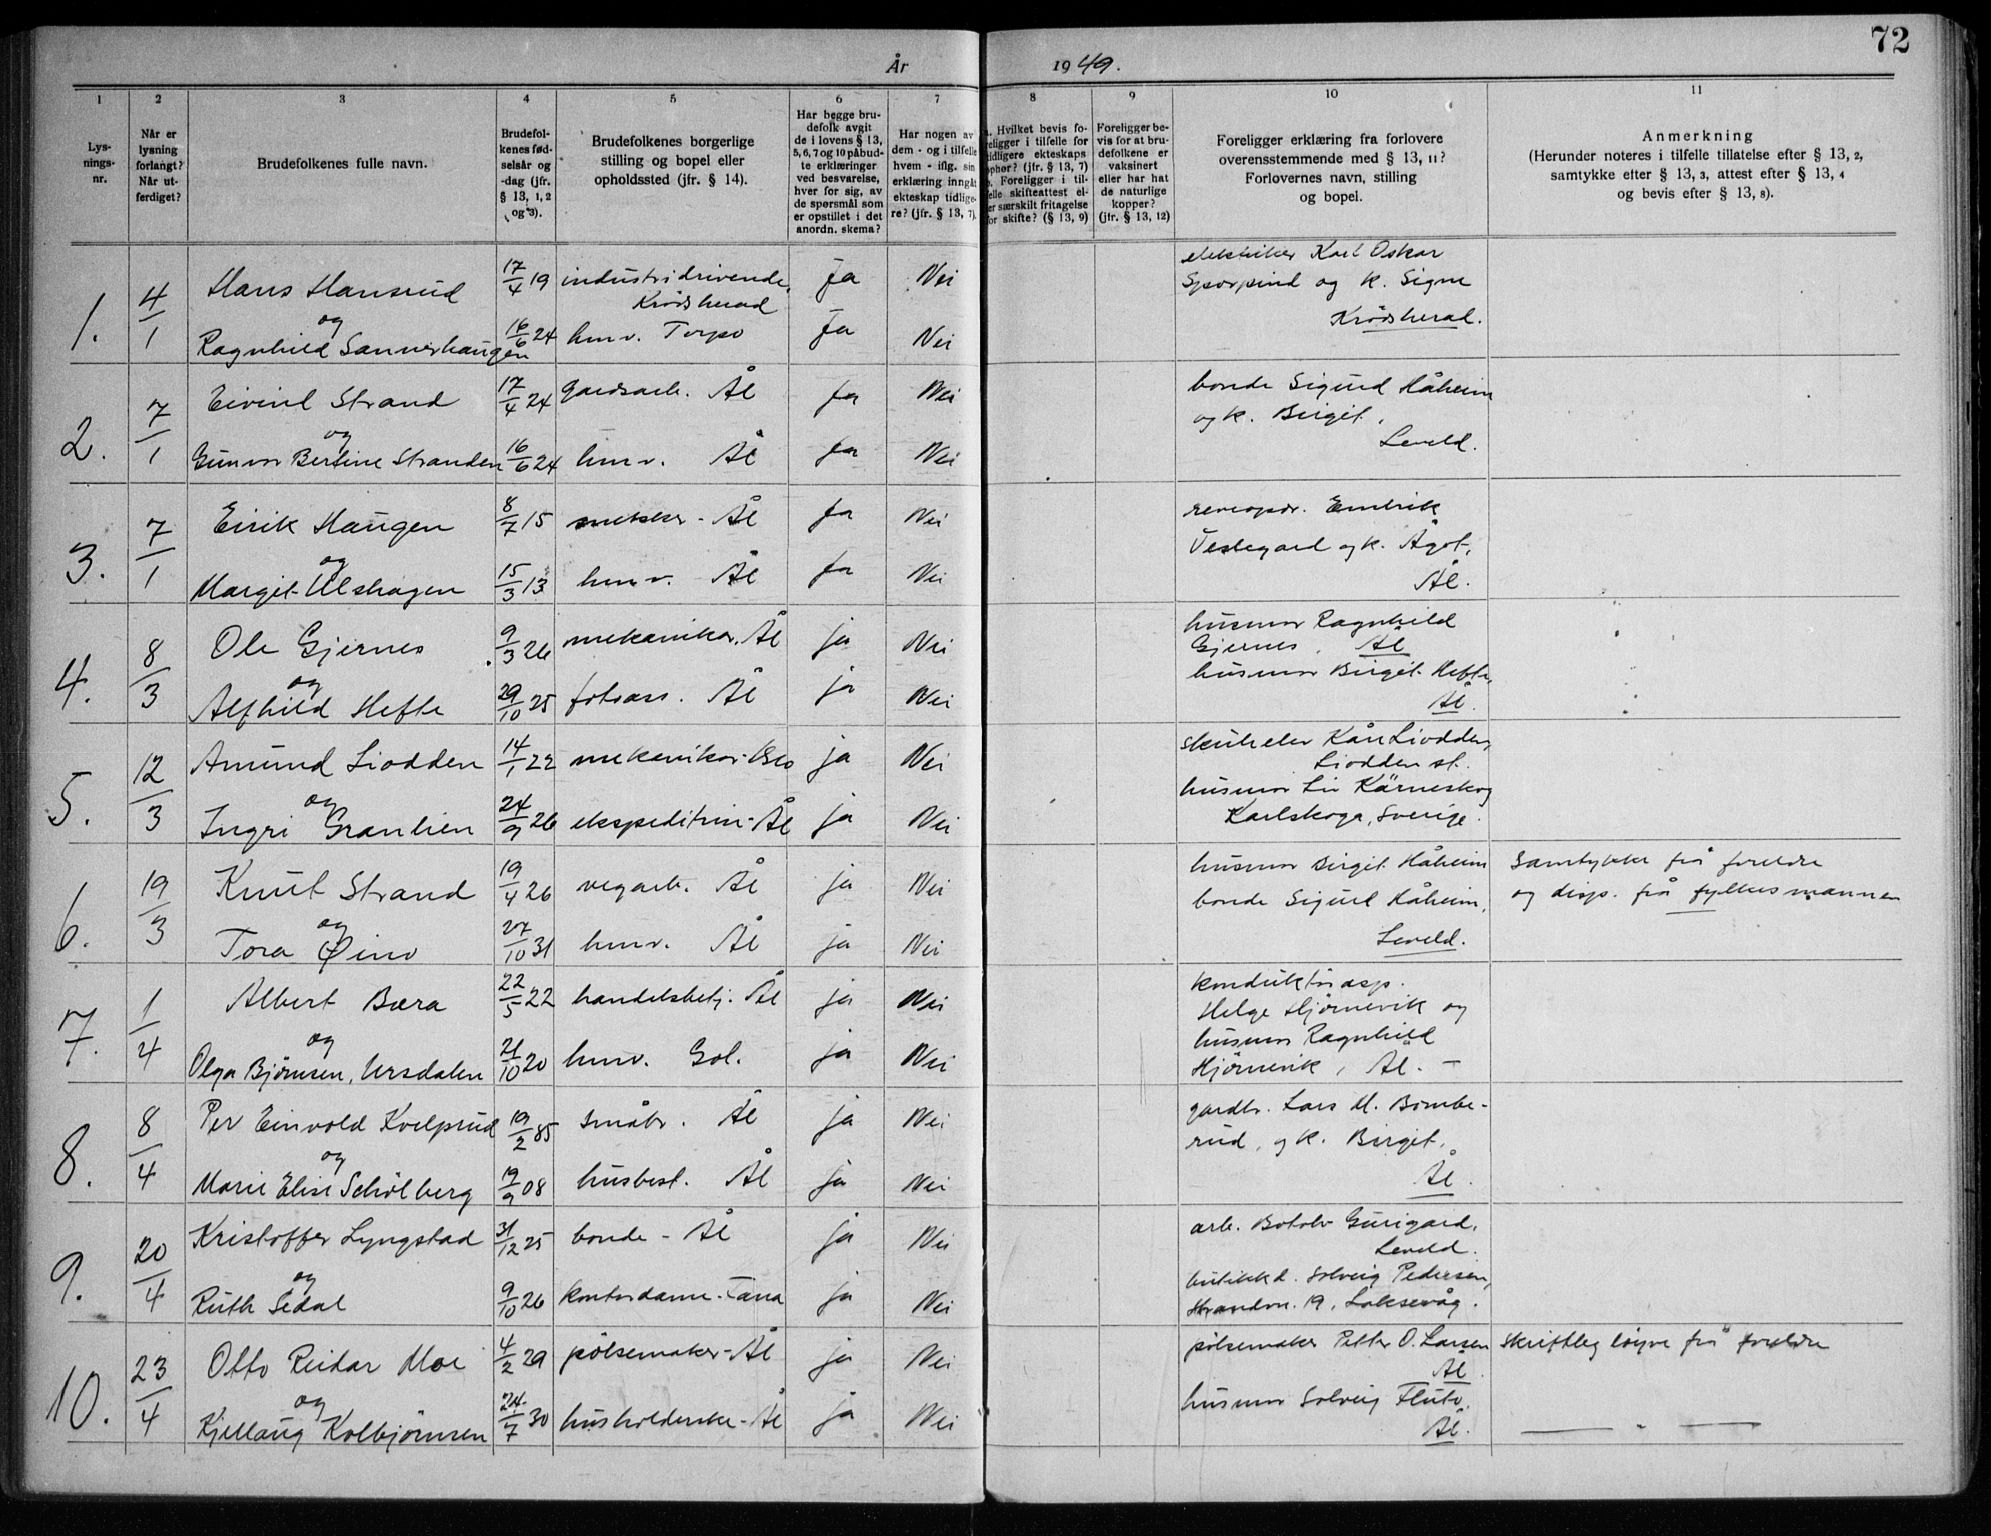 72
År 1949.
1 2 3 4 5 6 7 8 9 10 11
Lys-
nings-
nr.
Når er
lysning
forlangt?
Når ut-
ferdiget?
Brudefolkenes fulle navn.
Brudefol-
kenes fød-
selsår og
-dag (jfr.
§ 13, 1, 2
og 3).
Brudefolkenes borgerlige
stilling og bopel eller
opholdssted (jfr. § 14).
Har begge bru-
defolk avgit
de i lovens § 13,
5, 6, 7 og 10 påbud-
te erklæringer
ved besvarelse,
hver for sig, av
de spørsmål som
er opstillet i det
anordn. skema?
Har nogen av
dem - og i tilfelle
hvem - iflg. sin
erklæring inngåt
ekteskap tidlige-
re? (jfr. § 13, 7).
Hvilket bevis fo-
religger i tilfelle for
tidligere ekteskaps
ophør? (jfr. § 13, 7)
b. Foreligger i til-
felle skifteattest el-
ler særskilt fritagelse
for skifte? (§ 13, 9)
Foreligger be-
vis for at bru-
defolkene er
vaksinert
eller har hat
de naturlige
kopper?
(jfr. § 13, 12)
Foreligger erklæring fra forlovere
overensstemmende med § 13, 11?
Forlovernes navn, stilling
og bopel.
Anmerkning
(Herunder noteres i tilfelle tillatelse efter § 13, 2,
samtykke efter § 13, 3, attest efter § 13, 4
og bevis efter § 13, 8).
1. 4/1 Hans Hansrud 17/4 19 industridrivende, Krødsherad Ja Nei
og
Ragnhild Sannerhaugen 16/6 24 hmv. Torpo Ja Nei
elektriker Karl Oskar
Sporpind og k. Signe
Krødsherad.
2. 7/1 Eivind Strand 17/4 24 gardsarb. Ål Ja Nei
og
Gunvor Bertine Stranden 16/6 24 hmv. Ål Ja Nei
bonde Sigurd Håheim
og k. Birgit,
Leveld.
3. 7/1 Eirik Haugen 8/7 15 snekker - Ål Ja Nei
og
Margit Ulshagen 15/3 13 hmv. Ål Ja Nei
reveoppdr. Embrik
Vestegard og k. Ågot,
Ål.
4. 8/3 Ole Gjernes 9/3 26 mekaniker, Ål ja Nei
og
Alfhild Hefte 29/10 25 fotoass. Ål ja Nei
husmor Ragnhild
Gjernes, Ål
husmor Birgit Hefte,
Ål.
5. 12/3 Amund Liodden 14/1 22 mekaniker - Oslo ja Nei
og
Ingri Granlien 24/9 26 ekspeditrise - Ål ja Nei
Kåre Liodden,
Liodden st.
husmor Liv Kärneskog
Karlskoga, Sverige.
6. 19/3 Knut Strand 19/4 26 vegarb. Ål ja Nei
og
Tora Øino 27/10 31 hmv. Ål ja Nei
husmor Birgit Håheim
bonde Sigurd Håheim,
Leveld.
Samtykke frå foreldre
og disp. frå fylkesmannen
7. 1/4 Albert Bæra 22/5 22 handelsbetj. Ål ja Nei
og
Olga Bjørnsen, Ursdalen 21/10 20 hmv. Gol. ja Nei
konduktørasp.
Helge Hjørnevik og
husmor Ragnhild
Hjørnevik, Ål. -
8. 8/4 Per Einvold Kvelprud 19/2 85 småbr. Ål ja Nei
og
Marie Elise Schølberg 19/9 08 husbest. Ål ja Nei
gardbr. Lars M. Bombe-
rud, og k. Birgit,
Ål.
9. 20/4 Kristoffer Lyngstad 31/12 25 bonde - Ål ja Nei
og
Ruth Sedal 9/10 26 kontordame - Tana ja Nei
arb. Botolv Gurigard,
Leveld.
butikkd. Solveig Pedersen,
Strandvn. 19, Laksevåg.
10. 23/4 Otto Reidar Moe 4/2 29 pølsemaker - Ål ja Nei
og
Kjellaug Kolbjørnsen 24/7 30 husholderske - Ål ja Nei
pølsemaker Petter O. Larsen
Ål
husmor Solveig Fluto,
Ål.
Skriftleg løyve frå foreldre
— " —